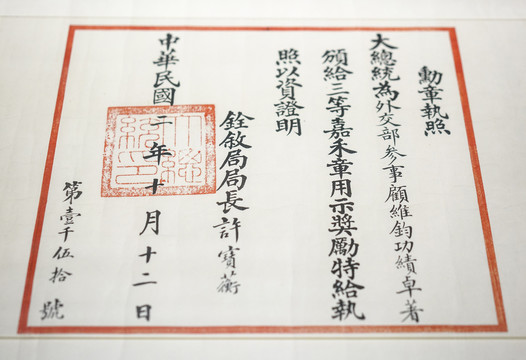 勳章執照
大總統為外交部參事顧維鈞功績卓著
頒給三等嘉禾章用示獎勵特給執
照以資證明
銓敘局局長許寶蘅
中華民國二年十月十二日
大總統印
第壹千伍拾號